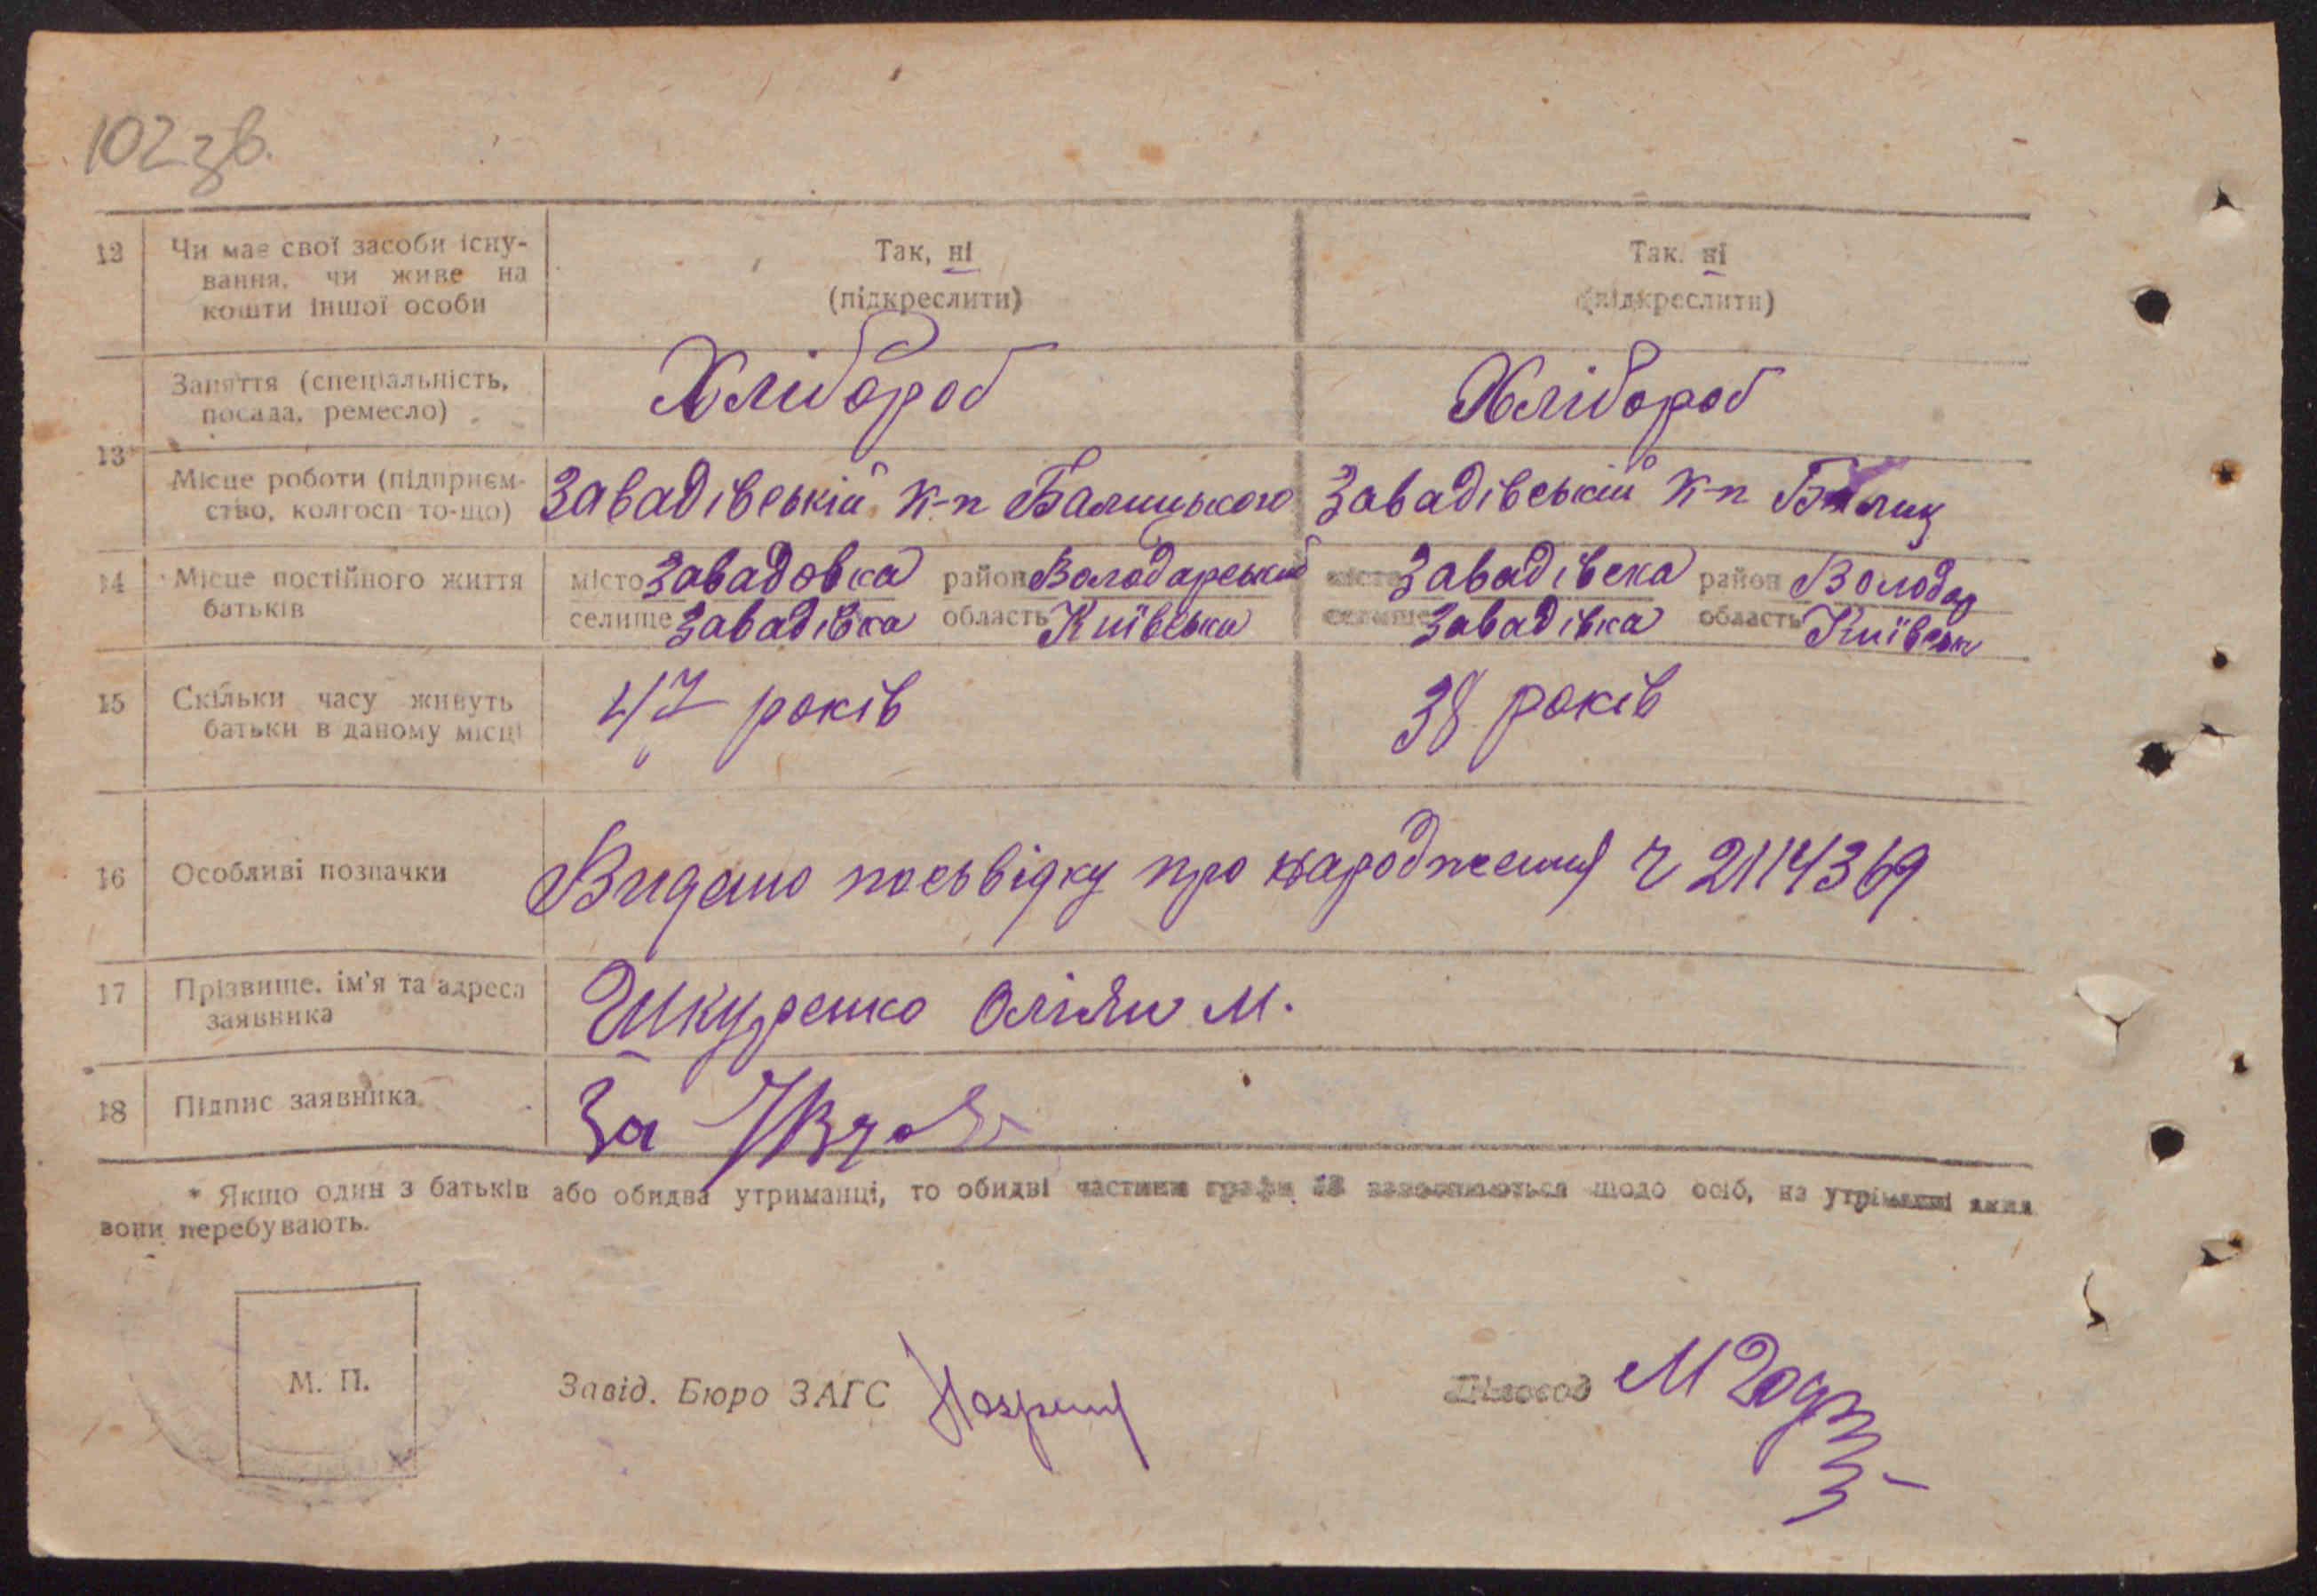 102 зв.
12 Чи має свої засоби існу- Так, ні Так, ні
вання, чи живе на (підкреслити) (підкреслити)
кошти іншої особи
Заняття (спеціальність, Хлібороб Хлібороб
посада, ремесло)
13*
Місце роботи (підприєм- Завадівській к-п Балицького Завадівській к-п Балиц
ство, колгосп то-що)
14 Місце постійного життя місто Завадовка район Володарський місто Завадівека район Володар
батьків селище Завадівка область Київська селище Завадівка область Київськ
15 Скільки часу живуть 47 років 38 років
батьки в даному місці
16 Особливі позначки Видано посьвідку про народження ч 2114369
17 Прізвище, ім'я та адреса Шкуренко Оліян М.
заявника
18 Підпис заявника За
* Якщо один з батьків або обидва утриманці, то обидві частини графи 13 заповнюються щодо осіб, на утриманні яких
вони перебувають.
М. П.
Завід. Бюро ЗАГС
Діловод М